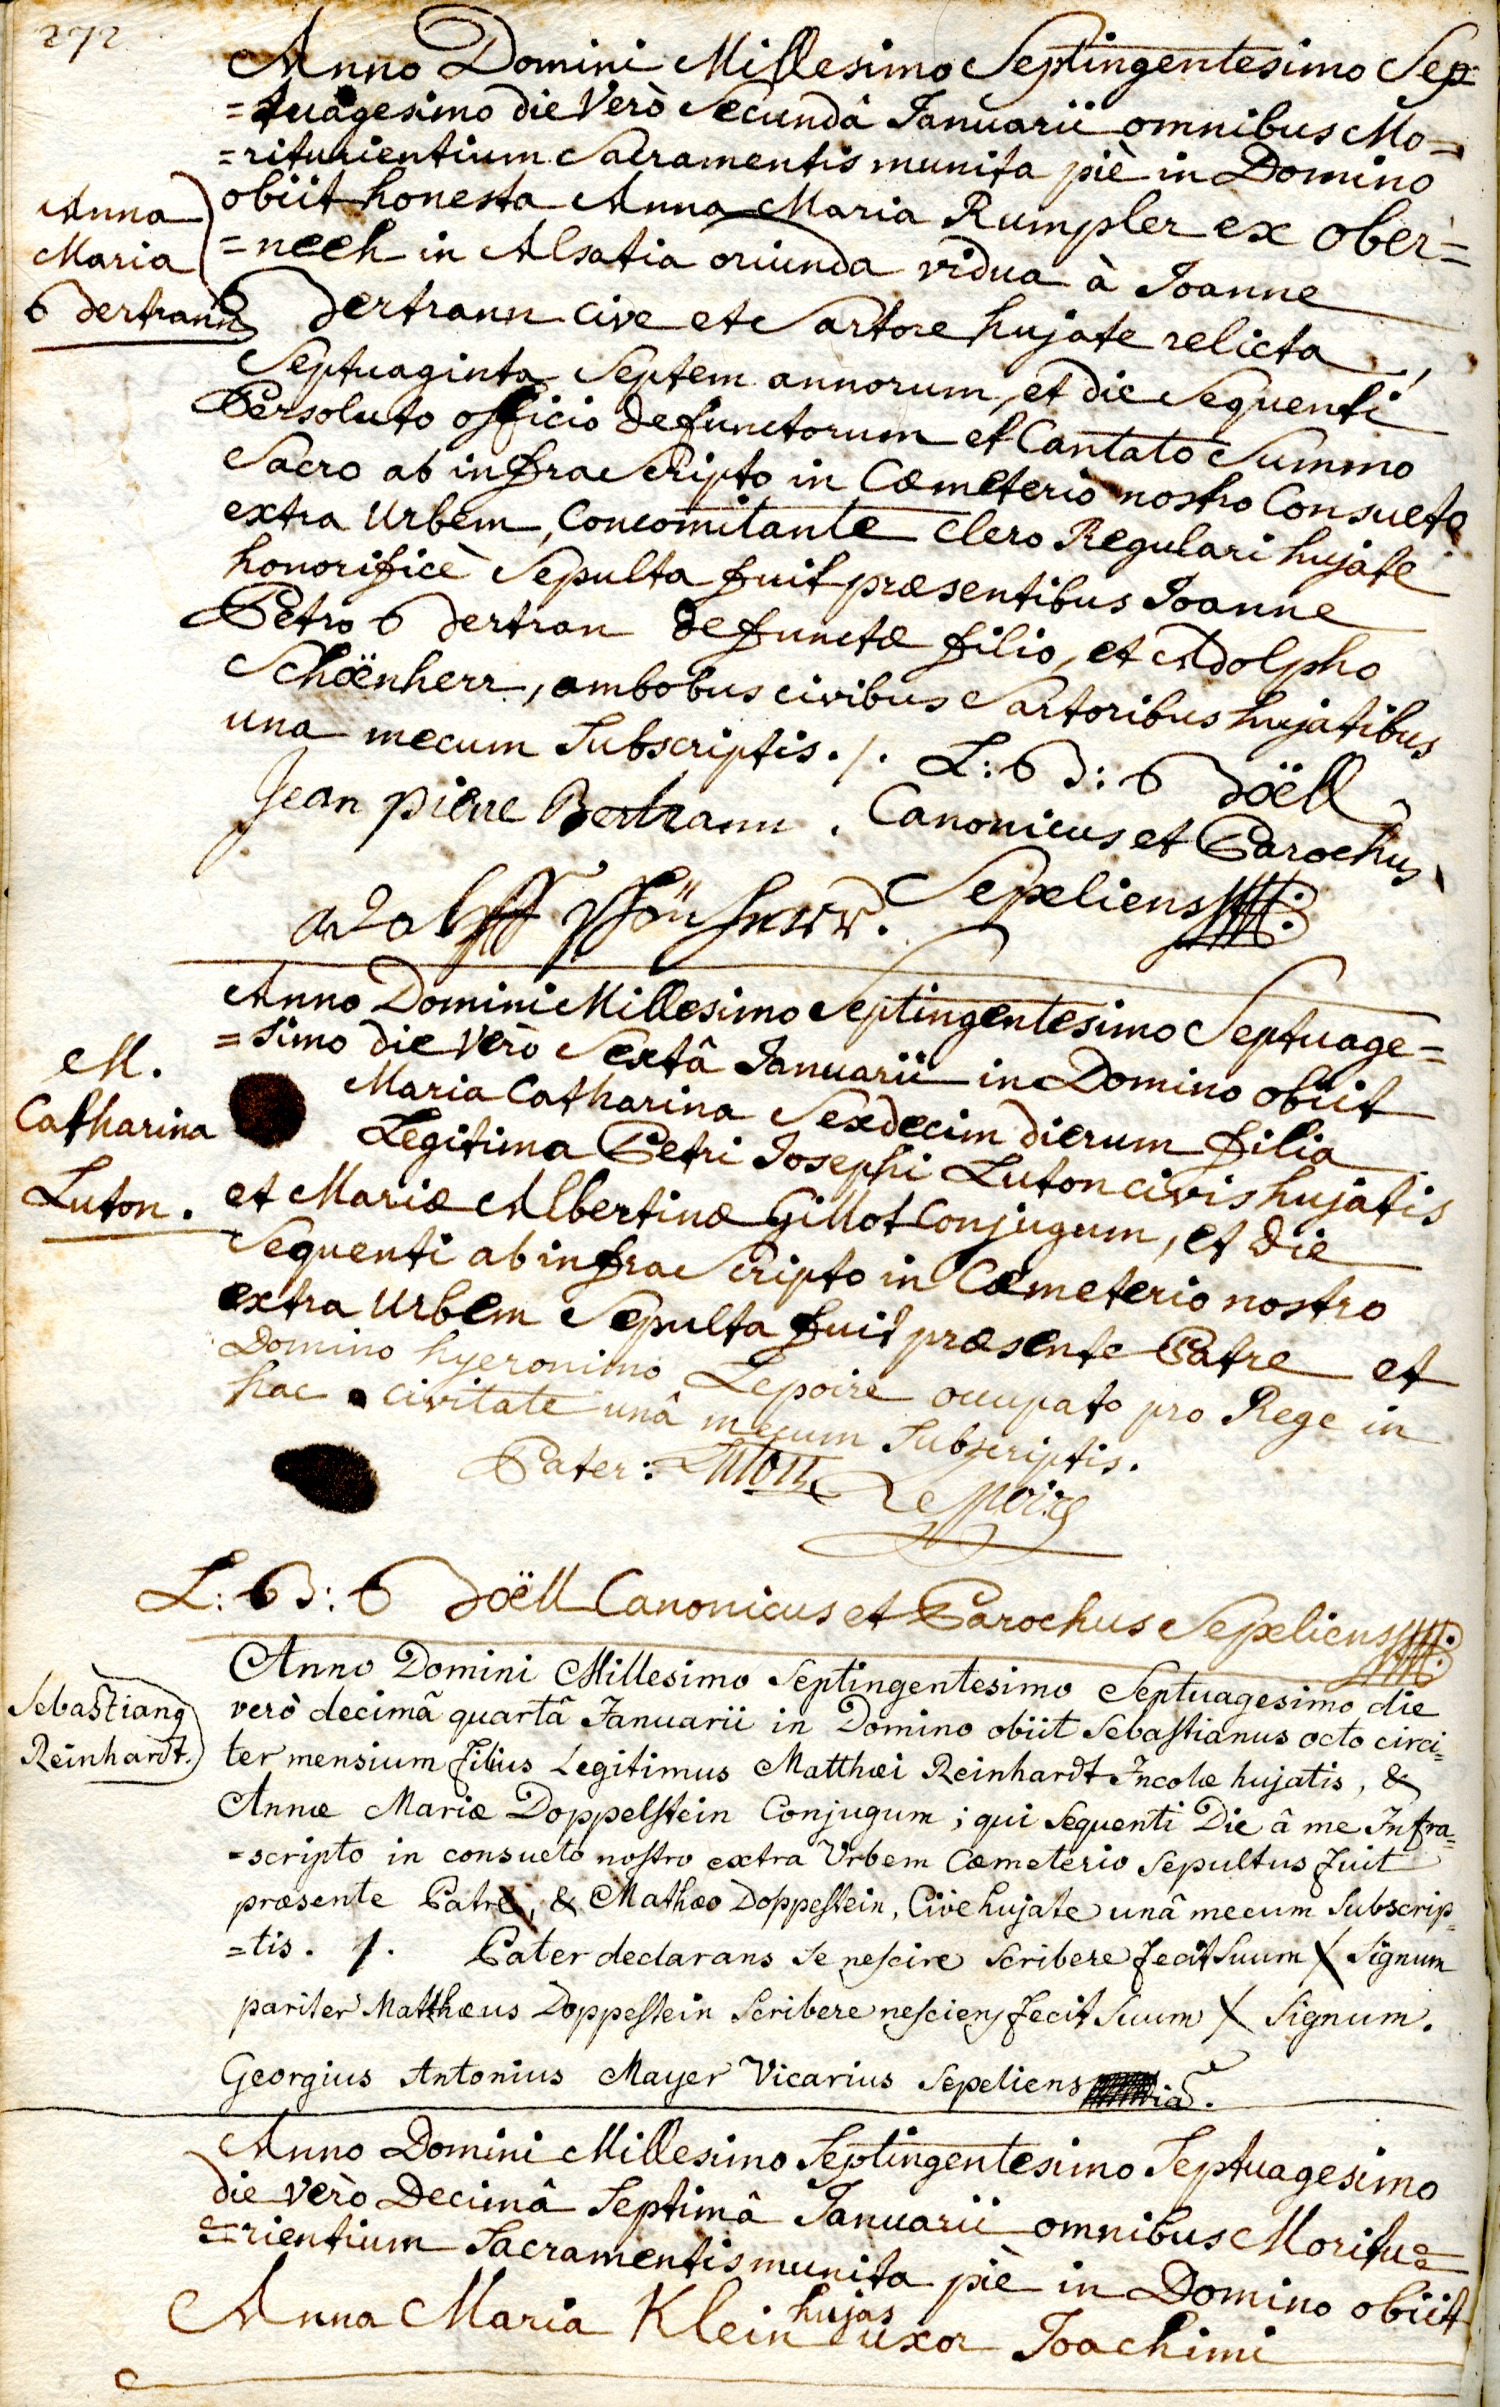 272
Anno Domini Millesimo Septingentesimo Sep-
=tuagesimo die Verò Secundâ Januarii omnibus Mo=
=riturientium Sacramentis munita piè in Domino
obiit honesta Anna Maria Rumpler ex ober=
=neeh in Alsatia oriunda vidua à Joanne
Bertrann cive et Sartore hujate relicta,
Septuaginta Septem annorum, et die Sequenti
Persoluto officio defunctorum et Cantato Summo
Sacro ab infra Scripto in Cœmeterio nostro Consueto
extra Urbem, Concomitante Clero Regulari hujate
honorificè Sepulta fuit præsentibus Joanne
Petro Bertran defunctæ filio, et Adolpho
Schöenherr, ambobus civibus Sartoribus hujatibus
una mecum Subscriptis. /. L: B: Böell
Jean pierre Bertrann. Canonicus et Parochus
Sepeliens
adolff schönherr.
Anna
Maria
Bertrann
Anno Domini Millesimo Septingentesimo Septuage=
=simo die Verò Sextâ Januarii in Domino obiit
Maria Catharina Sexdecim dierum filia
Legitima Petri Josephi Luton civis hujatis
et Mariæ Albertinæ Gillot Conjugum, et die
Sequenti ab infra Scripto in Cœmeterio nostro
extra Urbem Sepulta fuit præsente Patre et
Domino hyeronimo Lepoire occupato pro Rege in
hac civitate unâ mecum Subscriptis.
Pater: Luton Lepoire
L: B: Böell Canonicus et Parochus Sepeliens
M.
Catharina
Luton.
Anno Domini Millesimo Septingentesimo Septuagesimo die
verò decimâ quartâ Januarii in Domino obiit Sebastianus octo circi=
ter mensium filius Legitimus Matthæi Reinhardt Incolæ hujatis, &
Annæ Mariæ Doppelstein Conjugum; qui Sequenti Die â me Infra=
=scripto in consueto nostro extra Urbem Cœmeterio Sepultus fuit
præsente Patre, & Mathæo Doppestein, Cive hujate unâ mecum Subscrip=
=tis. /. Pater declarans Se nescire Scribere fecit Suum X Signum
pariter Matthæus Doppestein Scribere nesciens fecit Suum X Signum.
Georgius Antonius Mayer Vicarius Sepeliens
Sebastianq
Reinhardt.
Anno Domini Millesimo Septingentesimo Septuagesimo
die verò Decimâ Septimâ Januarii omnibus Moritu=
=rientium Sacramentis munita piè in Domino obiit
Anna Maria Klein hujas uxor Joachimi